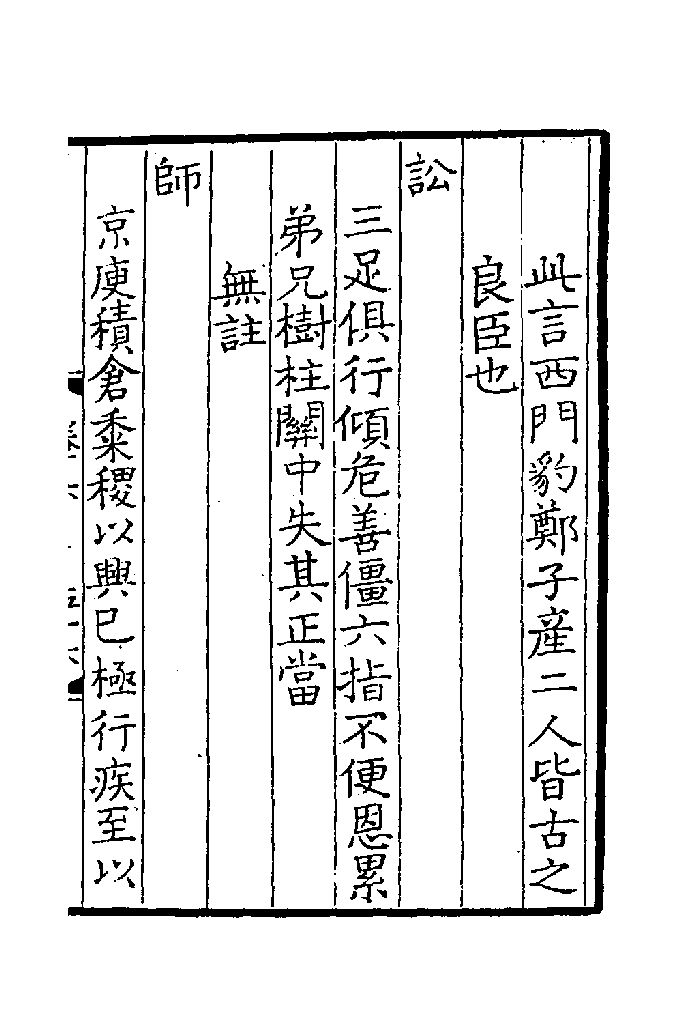 此言西門豹鄭子産二人皆古之
良臣也
訟
三足俱行傾危善僵六指不便恩累
弟兄樹柱關中失其正當
無註
師
京庾積倉黍稷以興巳極行疾至以